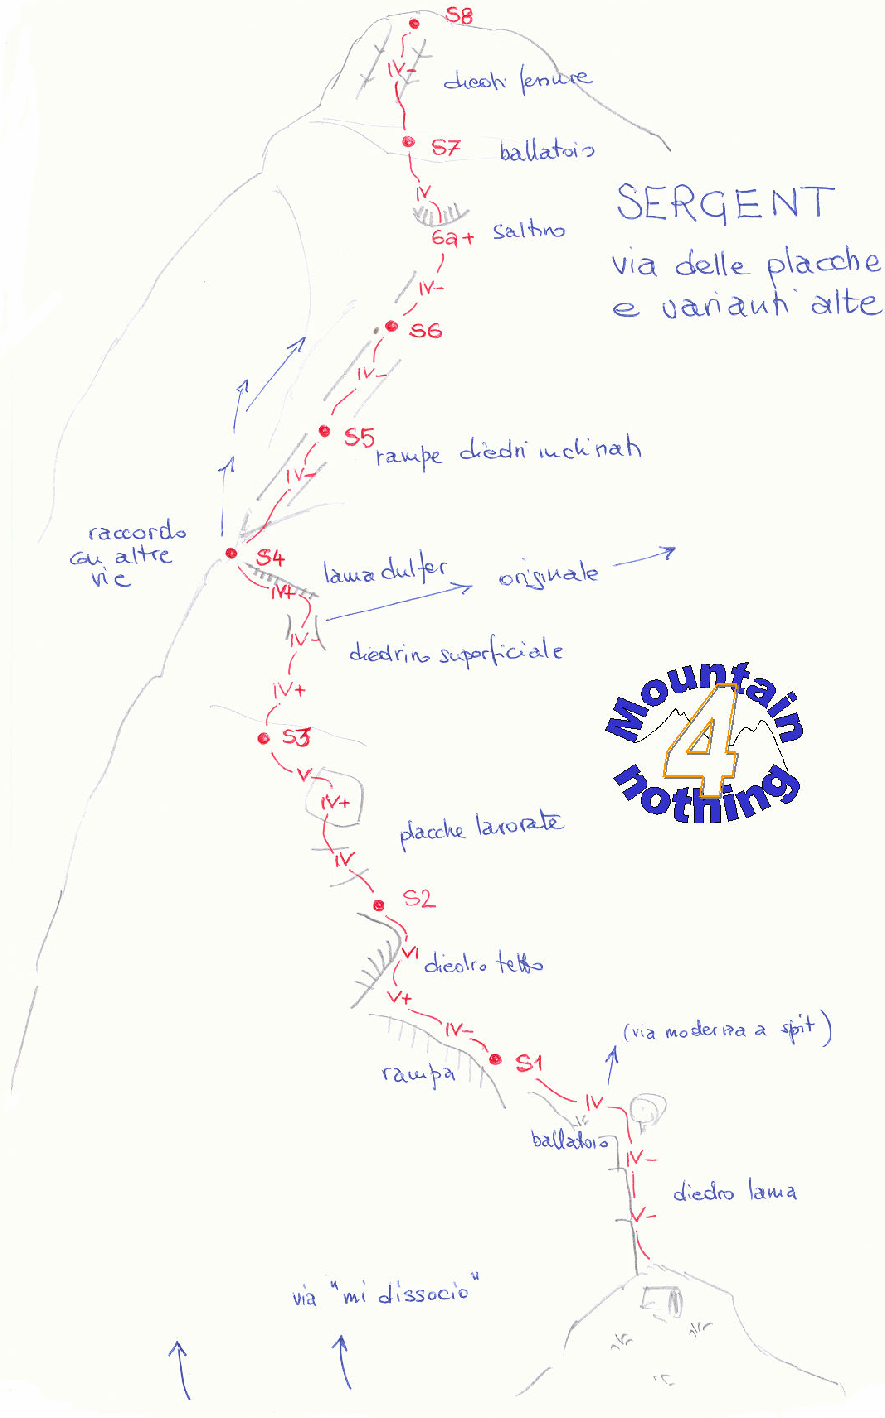 S8
IV-
diedri fessure
S7
ballatoio
IV
SERGENT
6a+
saltino
via delle placche
e varianti alte
IV-
S6
IV-
S5
rampe diedri inclinati
IV-
raccordo
con altre
vie
S4
lama dulfer
originale
IV+
IV-
diedrino superficiale
IV+
Mountain
4
nothing
S3
V
IV+
placche lavorate
IV
S2
VI
diedro tetto
V+
IV-
(via moderna a spit)
S1
rampa
IV
ballatoio
IV-
diedro lama
V-
via "mi dissocio"